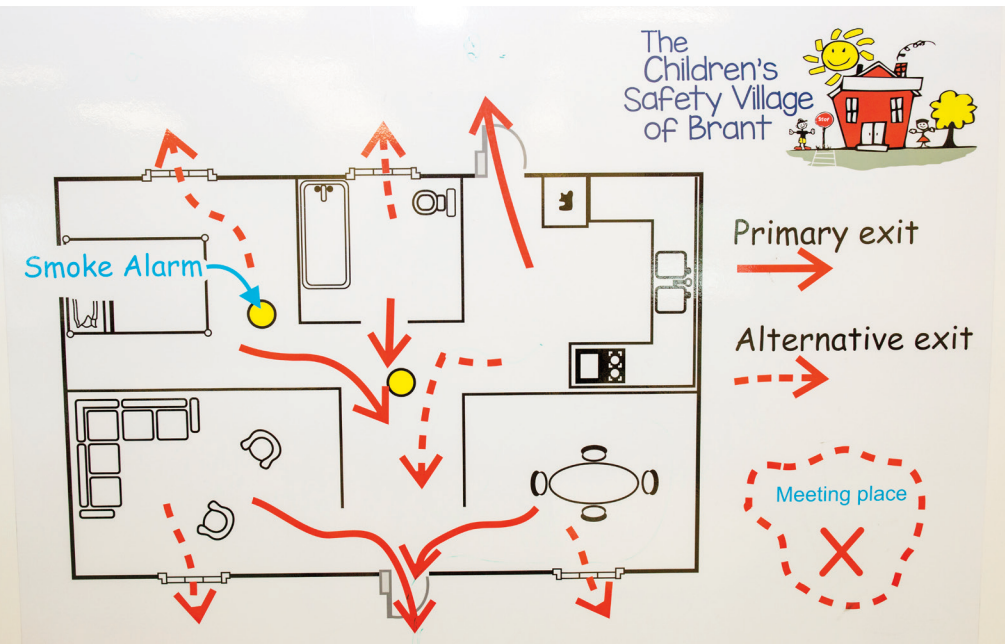 The
Children's
Safety Village
of Brant
STOP
Smoke Alarm
Primary exit
Alternative exit
Meeting place